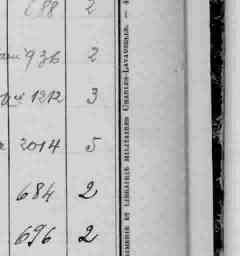 688 2
936 2
1212 3
2014 5
684 2
696 2
IMERIE ET LIBRAIRIE MILITAIRES CHARLES-LAVAUZELLE. —